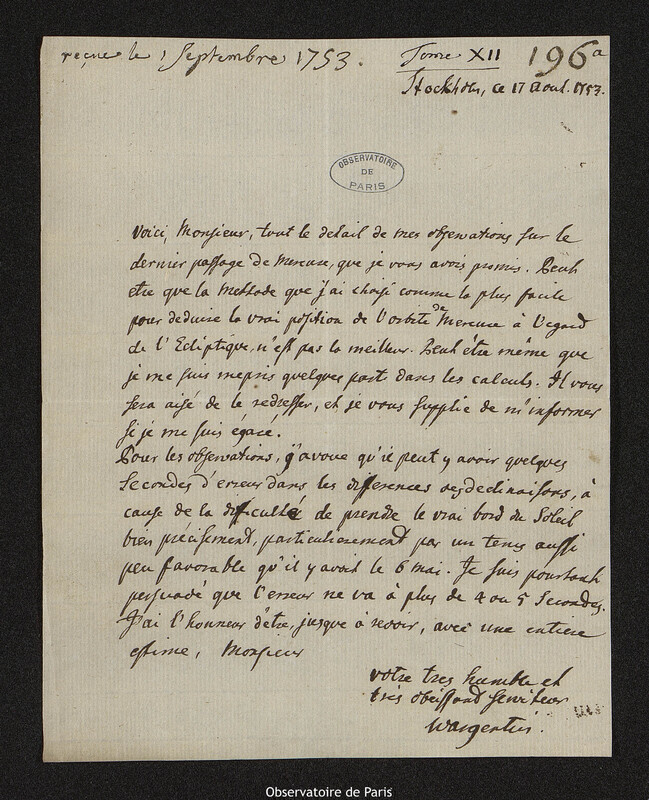 reçue le 1 Septembre 1753. Tome XII 196a
Stockholm, ce 17 Aout. 1753.
OBSERVATOIRE
DE
PARIS
Voici, Monsieur, tout le detail de mes observations sur le
dernier passage de Mercure, que je vous avois promis. Peut
etre que la methode que j'ai choisi comme la plus facile
pour deduire la vrai position de l'orbite de Mercure à l'egard
de l'Ecliptique, n'est pas la meilleur. Peut être même que
je me suis mepris quelque part dans les calculs. Il vous
sera aisé de le redresser, et je vous supplie de m'informer
si je me suis égaré.
Pour les observations, j'avoue qu'il peut y avoir quelques
secondes d'erreur dans les differences des declinaisons, à
cause de la difficulté de prendre le vrai bord du Soleil
bien précisement, particulierement par un tems aussi
peu favorable qu'il y avoit le 6 mai. Je suis pourtant
persuadé que l'erreur ne va à plus de 4 ou 5 Secondes.
J'ai l'honneur d'être, jusque à revoir, avec une entiere
estime, Monsieur
votre tres humble et
tres obeissand serviteur
Wargentin.
Observatoire de Paris